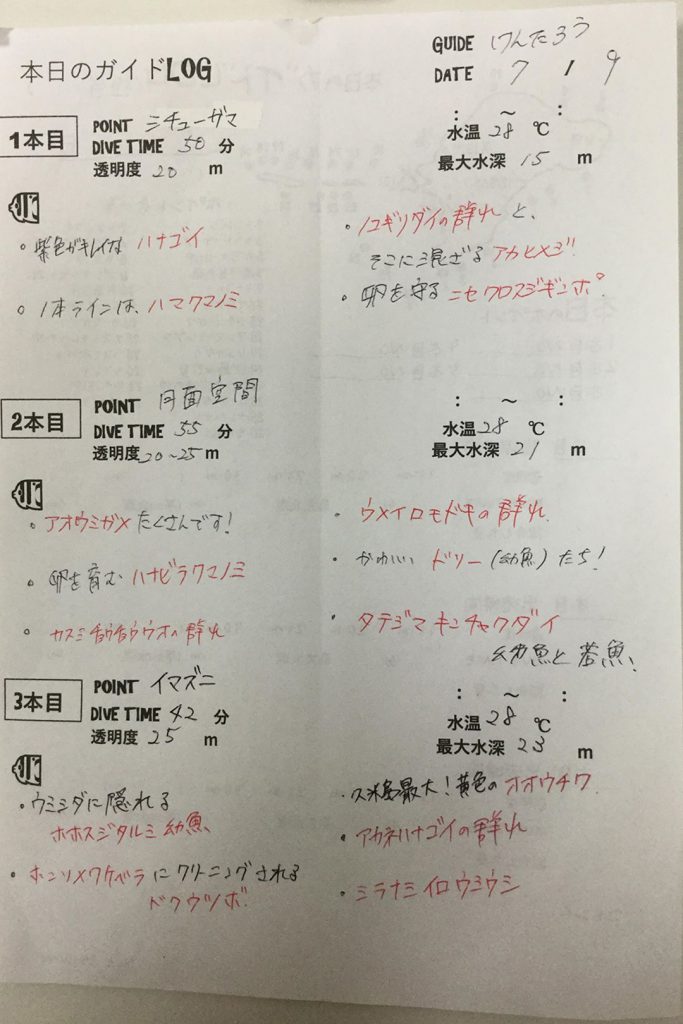 本日のガイドLOG
GUIDE けんたろう
DATE 7 / 9
1本目
POINT ミチューガマ
DIVE TIME 50 分
透明度 20 m
: ～ :
水温 28 ℃
最大水深 15 m
・紫色がキレイな ハナゴイ
・1本ラインは、ハマクマノミ
・ノコギリダイの群れ と、
そこに混ざる アカヒメジ!
・卵を守る ニセクロスジギンポ!
2本目
POINT 月面空間
DIVE TIME 55 分
透明度 20~25 m
: ～ :
水温 28 ℃
最大水深 21 m
・アオウミガメ たくさんです!
・卵を育む ハナビラクマノミ
・カスミチョウチョウウオの群れ
・ウメイロモドキの群れ
・かわいい ドリー (幼魚) たち!
・タテジマキンチャクダイ
幼魚と若魚、
3本目
POINT イマズニ
DIVE TIME 42 分
透明度 25 m
: ～ :
水温 28 ℃
最大水深 23 m
・ウミシダに隠れる
ホホスジタルミ 幼魚、
・ホンソメワケベラ にクリーニングされる
ドクウツボ!
・久米島最大! 黄色の オオウチワ
・アカネハナゴイの群れ
・ミラナミイロウミウシ